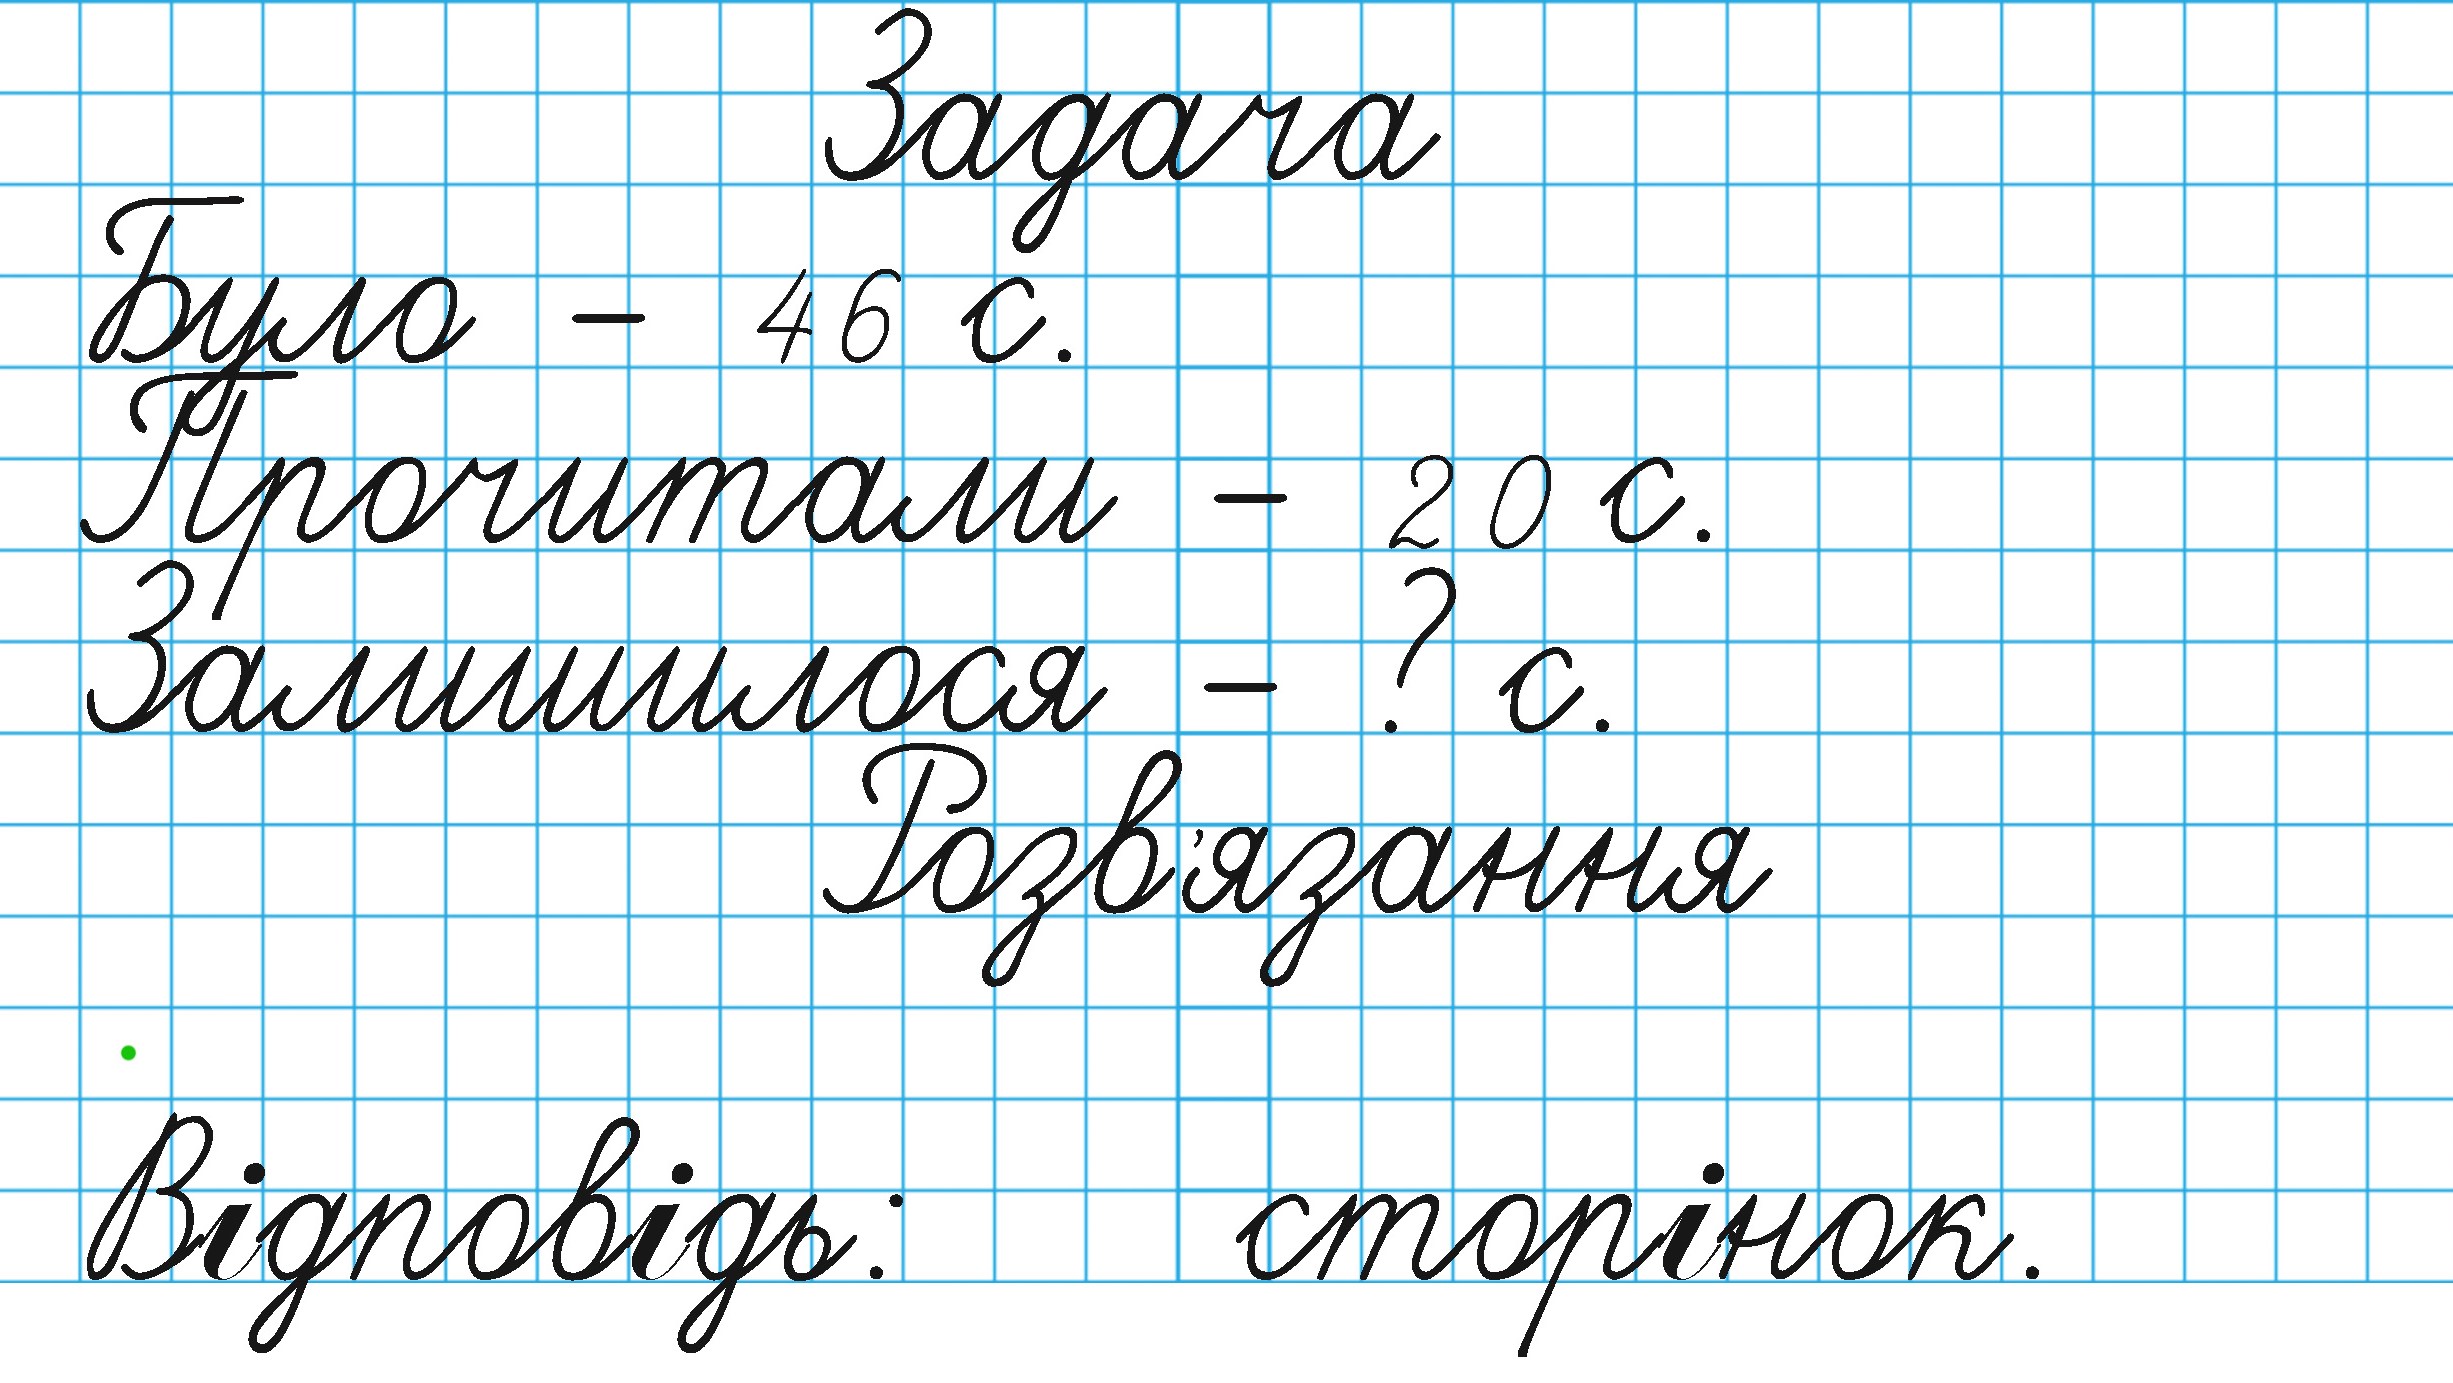 Задача
Було – 46 с.
Прочитали – 20 с.
Залишилося – ? с.
Розв'язання
Відповідь: сторінок.